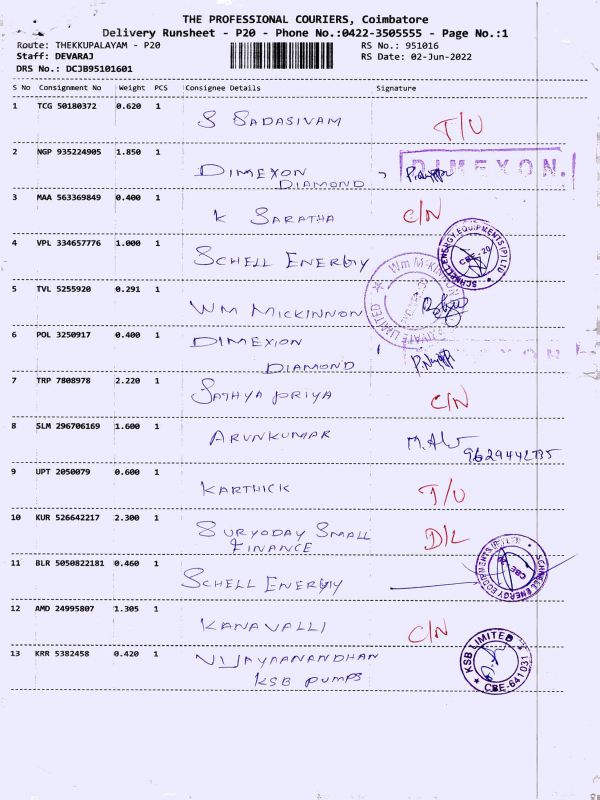 THE PROFESSIONAL COURIERS, Coimbatore
Delivery Runsheet - P20 - Phone No.:0422-3505555 - Page No.:1
Route: THEKKUPALAYAM - P20 RS No.: 951016
Staff: DEVARAJ RS Date: 02-Jun-2022
DRS No.: DCJB95101601
S No Consignment No Weight PCS Consignee Details Signature
1 TCG 50180372 0.620 1
S SADASIVAM T/U
2 NGP 935224905 1.850 1
DIMEXON DIMEXON.
DIAMOND
3 MAA 563369849 0.400 1
K SARATHA C/N
4 VPL 334657776 1.000 1
SCHELL ENERGY SCHNELL ENERGY EQUIPMENTS (P) LTD CBE-20
5 TVL 5255920 0.291 1
WM MICKINNON PRIVATE LIMITED
6 POL 3250917 0.400 1
DIMEXION
DIAMOND
7 TRP 7808978 2.220 1
SATHYA PRIYA C/N
8 SLM 296706169 1.600 1
ARUNKUMAR
9629442735
9 UPT 2050079 0.600 1
KARTHICK T/U
10 KUR 526642217 2.300 1
SURYODAY SMALL D/L
FINANCE
11 BLR 5050822181 0.460 1
SCHELL ENERGY SCHNELL ENERGY EQUIPMENTS CBE
12 AMD 24995807 1.305 1
KANAVALLI C/N
13 KRR 5382458 0.420 1
VIJAYAANANDHAN KSB LIMITED
KSB PUMPS CBE-641 031